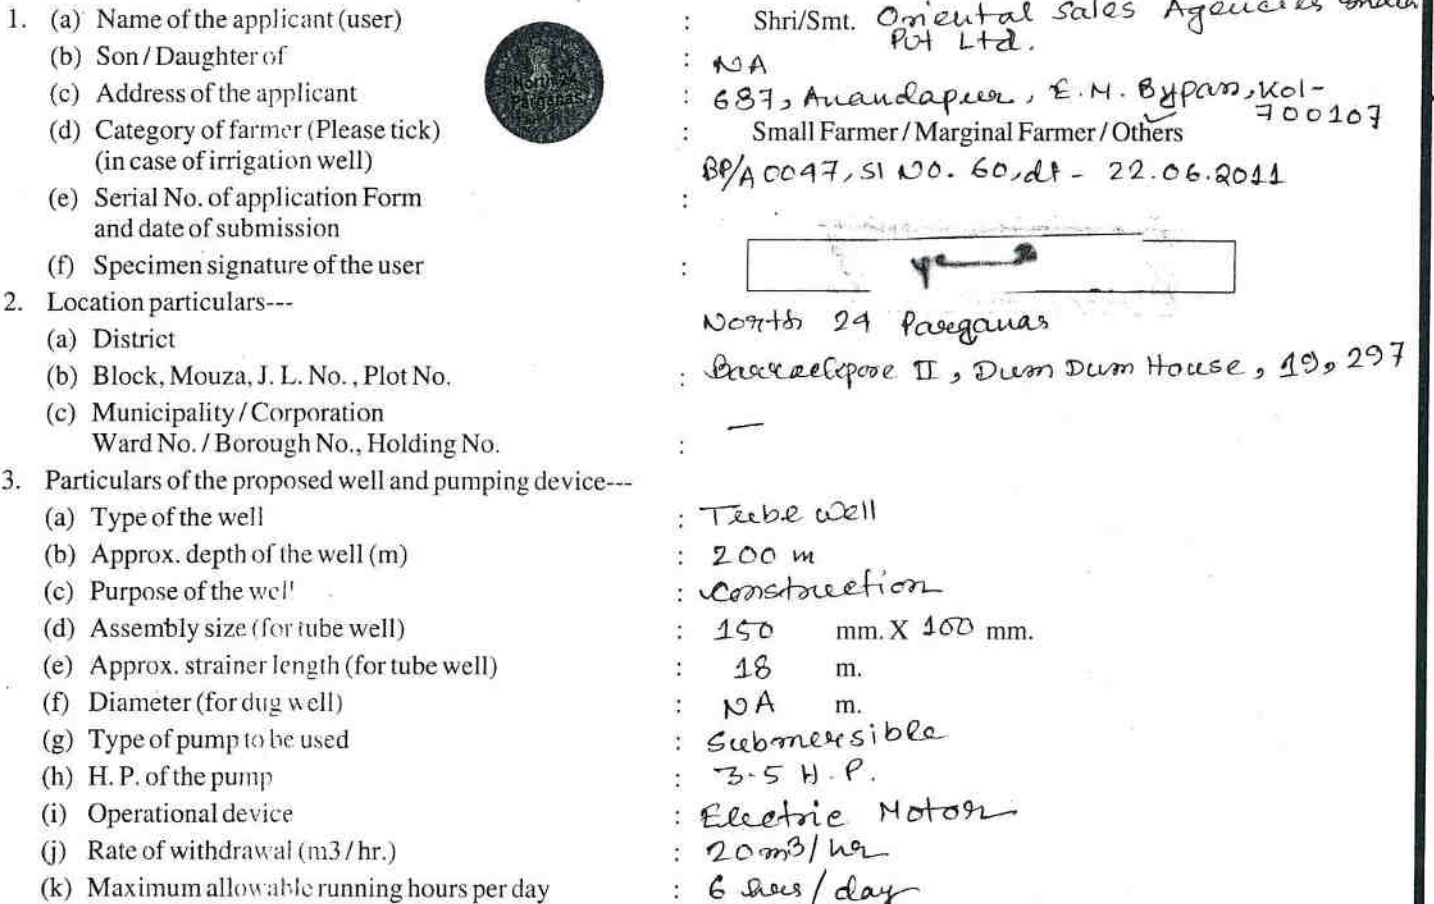 1. (a) Name of the applicant (user) : Shri/Smt. Oriental Sales Agencies India
Pvt Ltd.
(b) Son / Daughter of : NA
(c) Address of the applicant : 687, Anandapur, E.M. Bypass, Kol-
700107
(d) Category of farmer (Please tick) : Small Farmer / Marginal Farmer / Others
(in case of irrigation well)
BP/A 0047, Sl NO. 60, dt - 22.06.2011
(e) Serial No. of application Form :
and date of submission
(f) Specimen signature of the user :
2. Location particulars---
North 24 Parganas
(a) District
(b) Block, Mouza, J. L. No. , Plot No. : Barrackpore II, Dum Dum House, 19, 297
(c) Municipality / Corporation —
Ward No. / Borough No., Holding No. :
3. Particulars of the proposed well and pumping device---
(a) Type of the well : Tube well
(b) Approx. depth of the well (m) : 200 m
(c) Purpose of the well : Construction
(d) Assembly size (for tube well) : 150 mm. X 100 mm.
(e) Approx. strainer length (for tube well) : 18 m.
(f) Diameter (for dug well) : NA m.
(g) Type of pump to be used : Submersible
(h) H. P. of the pump : 3.5 H.P.
(i) Operational device : Electric Motor
(j) Rate of withdrawal (m3 / hr.) : 20 m3/hr
(k) Maximum allowable running hours per day : 6 hrs / day
North 24
Parganas